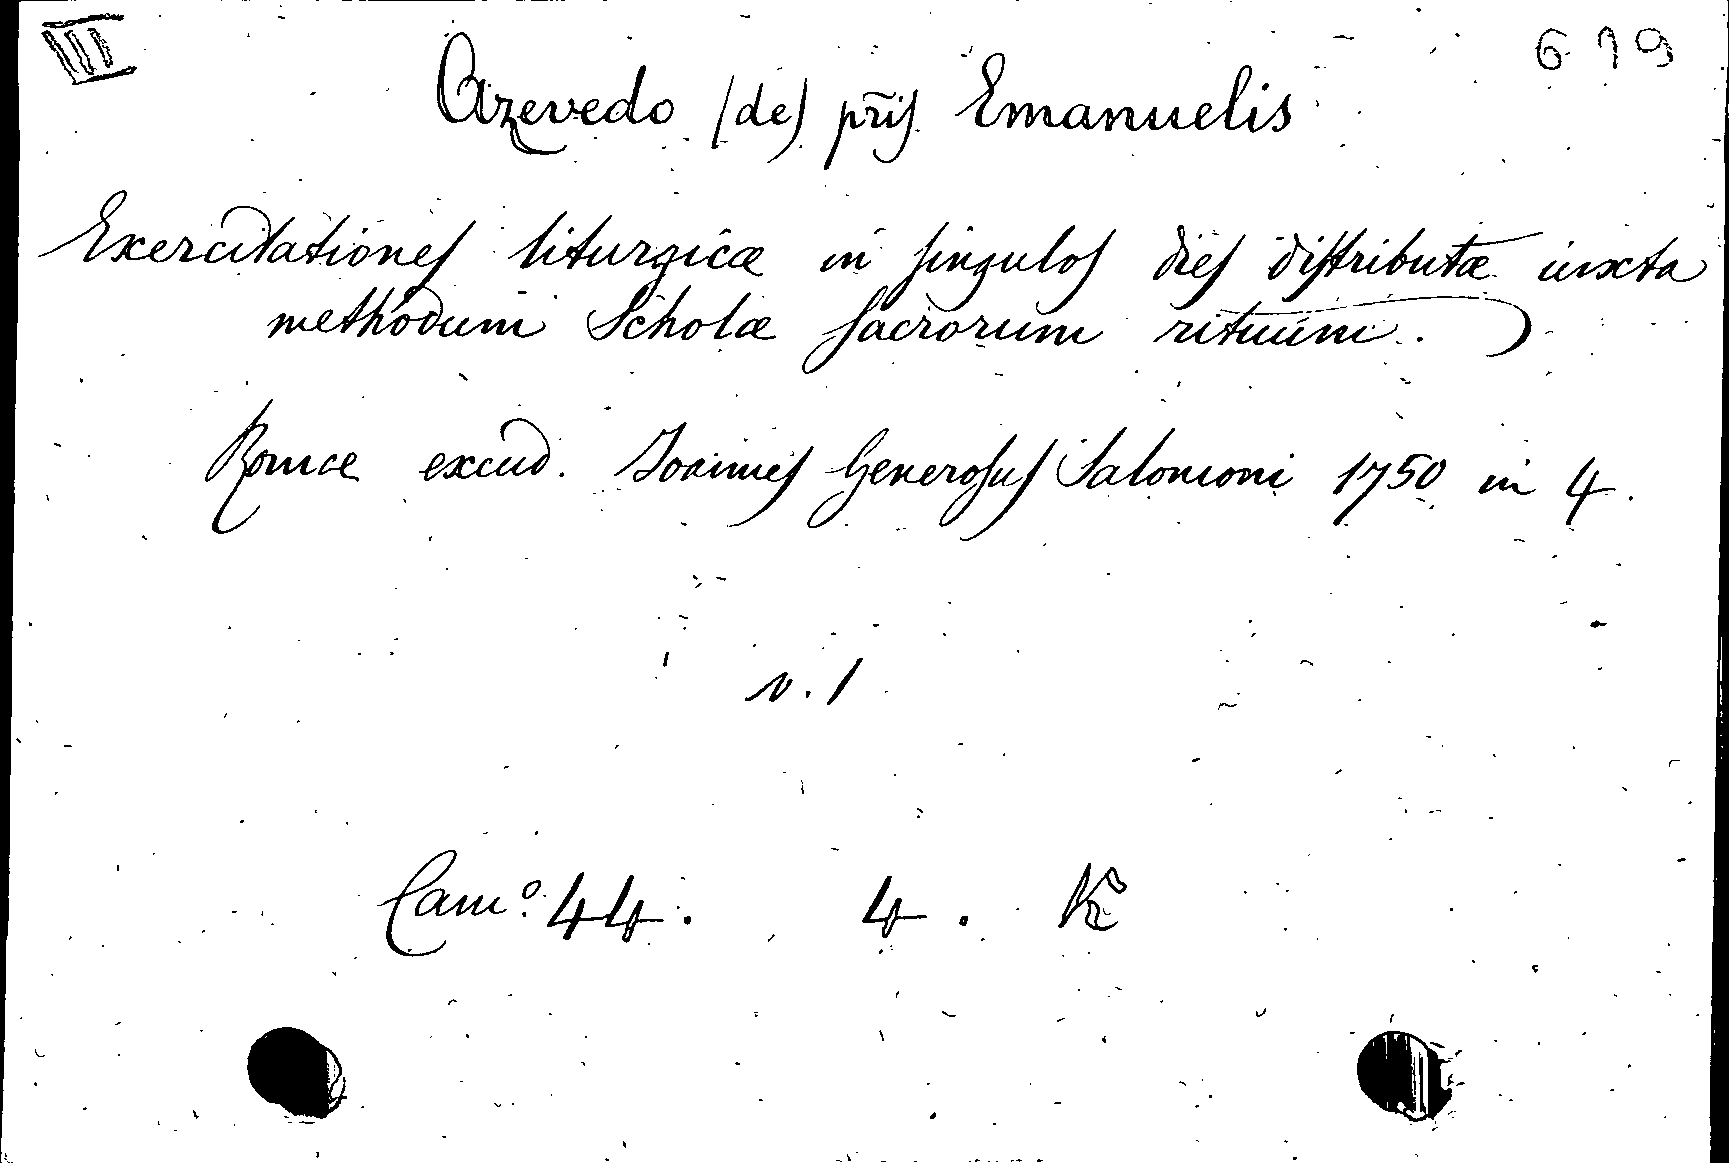 III 619
Azevedo (de) pr̃is Emanuelis
Exercitationes liturgicæ in singulos dies distributæ iuxta
methodum Scholæ sacrorum rituum.
Romæ excud. Joannes Generosus Salomoni 1750 in 4.
v. 1
Cam.º 44. 4. K